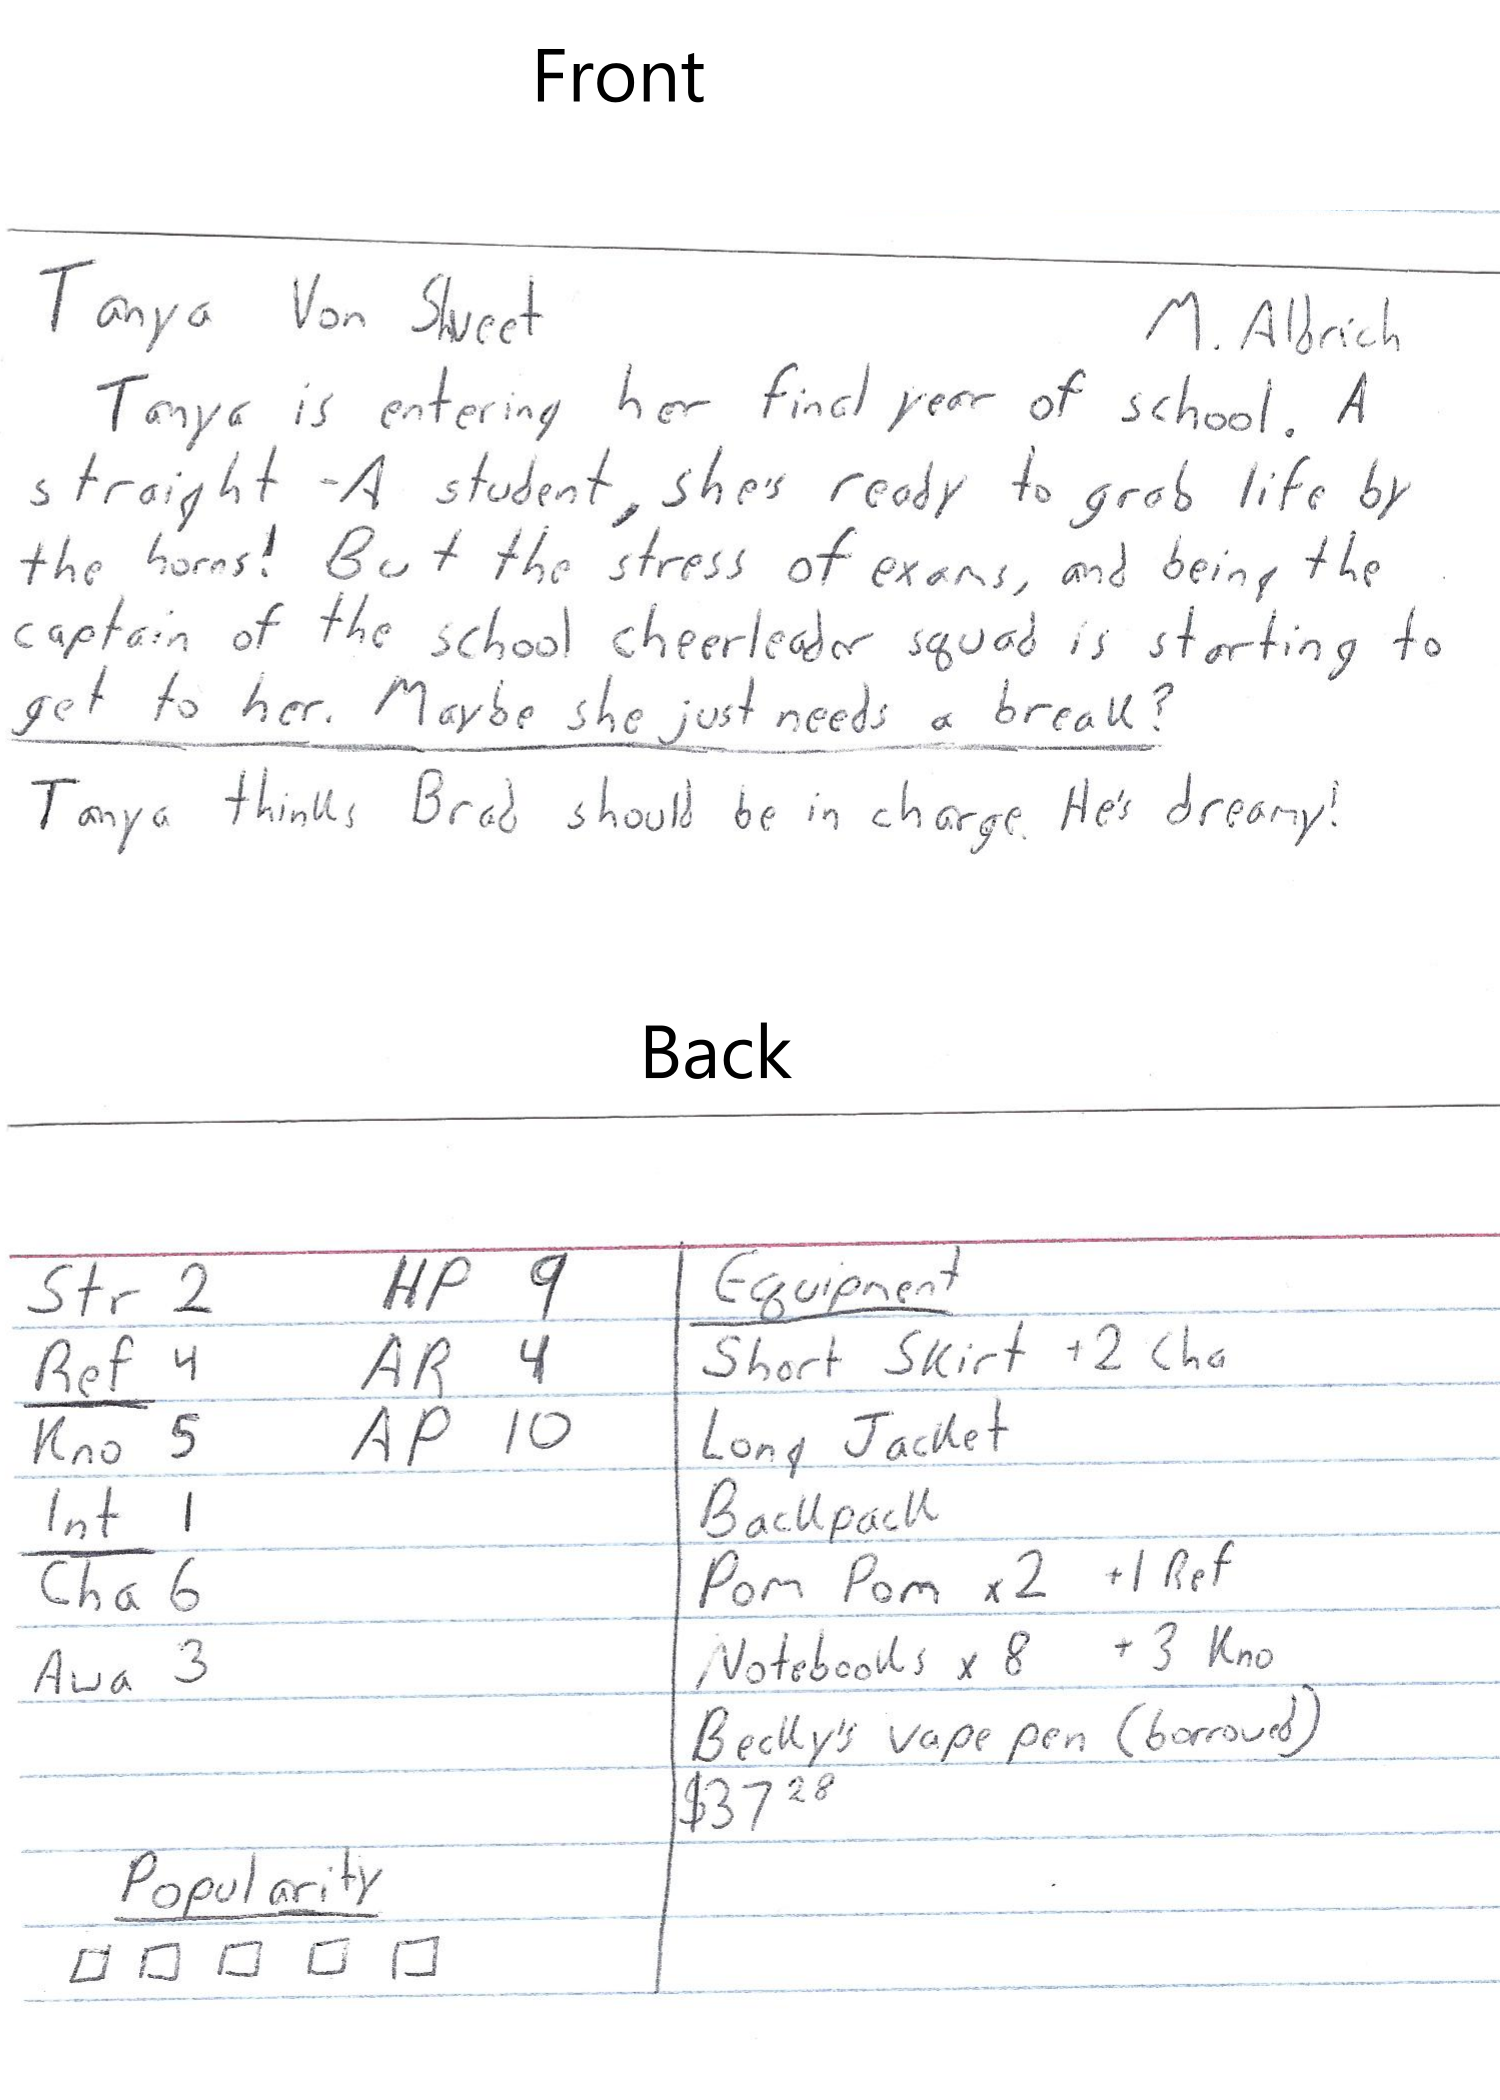 Front
Tanya Von Shveet M. Aldrich
Tanya is entering her final year of school. A
straight-A student, she's ready to grab life by
the horns! But the stress of exams, and being the
captain of the school cheerleader squad is starting to
get to her. Maybe she just needs a break?
Tanya thinks Brad should be in charge. He's dreamy!
Back
Str 2 HP 9 Equipment
Ref 4 AR 4 Short Skirt +2 Cha
Kno 5 AP 10 Long Jacket
Int 1 Backpack
Cha 6 Pom Pom x2 +1 Ref
Awa 3 Notebooks x 8 +3 Kno
Becky's vape pen (borrowed)
$37 28
Popularity